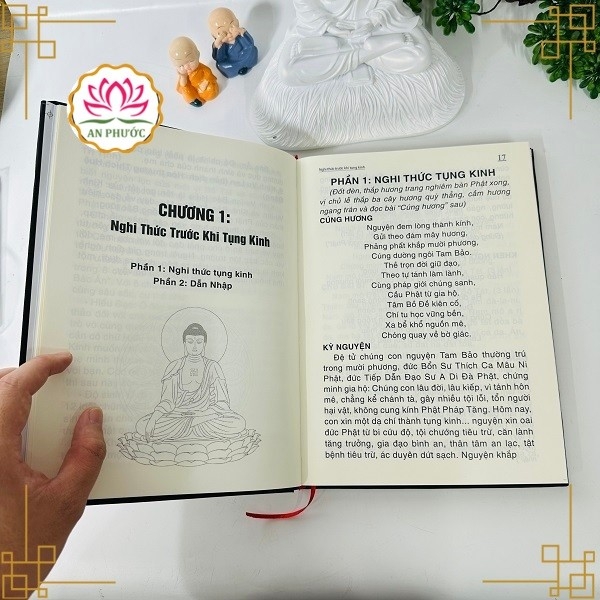 AN PHƯỚC
CHƯƠNG 1:
Nghi Thức Trước Khi Tụng Kinh
Phần 1: Nghi thức tụng kinh
Phần 2: Dẫn Nhập
Nghi thức trước khi tụng kinh
17
PHẦN 1: NGHI THỨC TỤNG KINH
(Đốt đèn, thắp hương trang nghiêm bàn Phật xong,
vị chủ lễ thắp ba cây hương quỳ thẳng, cầm hương
ngang trán và đọc bài "Cúng hương" sau)
CÚNG HƯƠNG
Nguyện đem lòng thành kính,
Gửi theo đám mây hương,
Phảng phất khắp mười phương,
Cúng dường ngôi Tam Bảo.
Thề trọn đời giữ đạo,
Theo tự tánh làm lành,
Cùng pháp giới chúng sanh,
Cầu Phật từ gia hộ.
Tâm Bồ Đề kiên cố,
Chí tu học vững bền,
Xa bể khổ nguồn mê,
Chóng quay về bờ giác.
KỲ NGUYỆN
Đệ tử chúng con nguyện Tam Bảo thường trú
trong mười phương, đức Bổn Sư Thích Ca Mâu Ni
Phật, đức Tiếp Dẫn Đạo Sư A Di Đà Phật, chứng
minh gia hộ: Chúng con lâu đời, lâu kiếp, vì tánh hôn
mê, chẳng kể chánh tà, gây nhiều tội lỗi, tổn người
hại vật, không cung kính Phật Pháp Tăng. Hôm nay,
con xin một dạ chí thành tụng kinh... nguyện xin oai
đức Phật từ bi cứu độ, tội chướng tiêu trừ, căn lành
tăng trưởng, gia đạo bình an, thân tâm an lạc, tật
bệnh tiêu trừ, ác duyên dứt sạch. Nguyện khắp